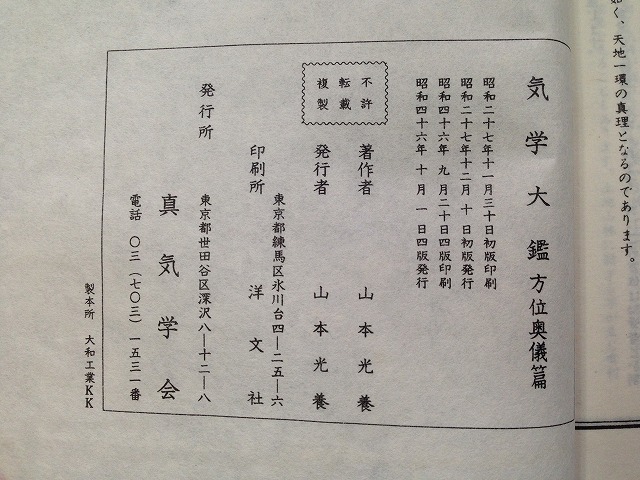 如く、天地一環の真理となるのであります。
気学大鑑 方位奥儀篇
昭和二十七年十一月三十日初版印刷
昭和二十七年十二月十日初版発行
昭和四十六年九月二十日四版印刷
昭和四十六年十月一日四版発行
不許
転載
複製
著作者 山本光養
発行者 山本光養
東京都練馬区氷川台四―二五―六
印刷所 洋文社
東京都世田谷区深沢八―十二―八
発行所 真気学会
電話 〇三(七〇三)一五三一番
製本所 大和工業KK